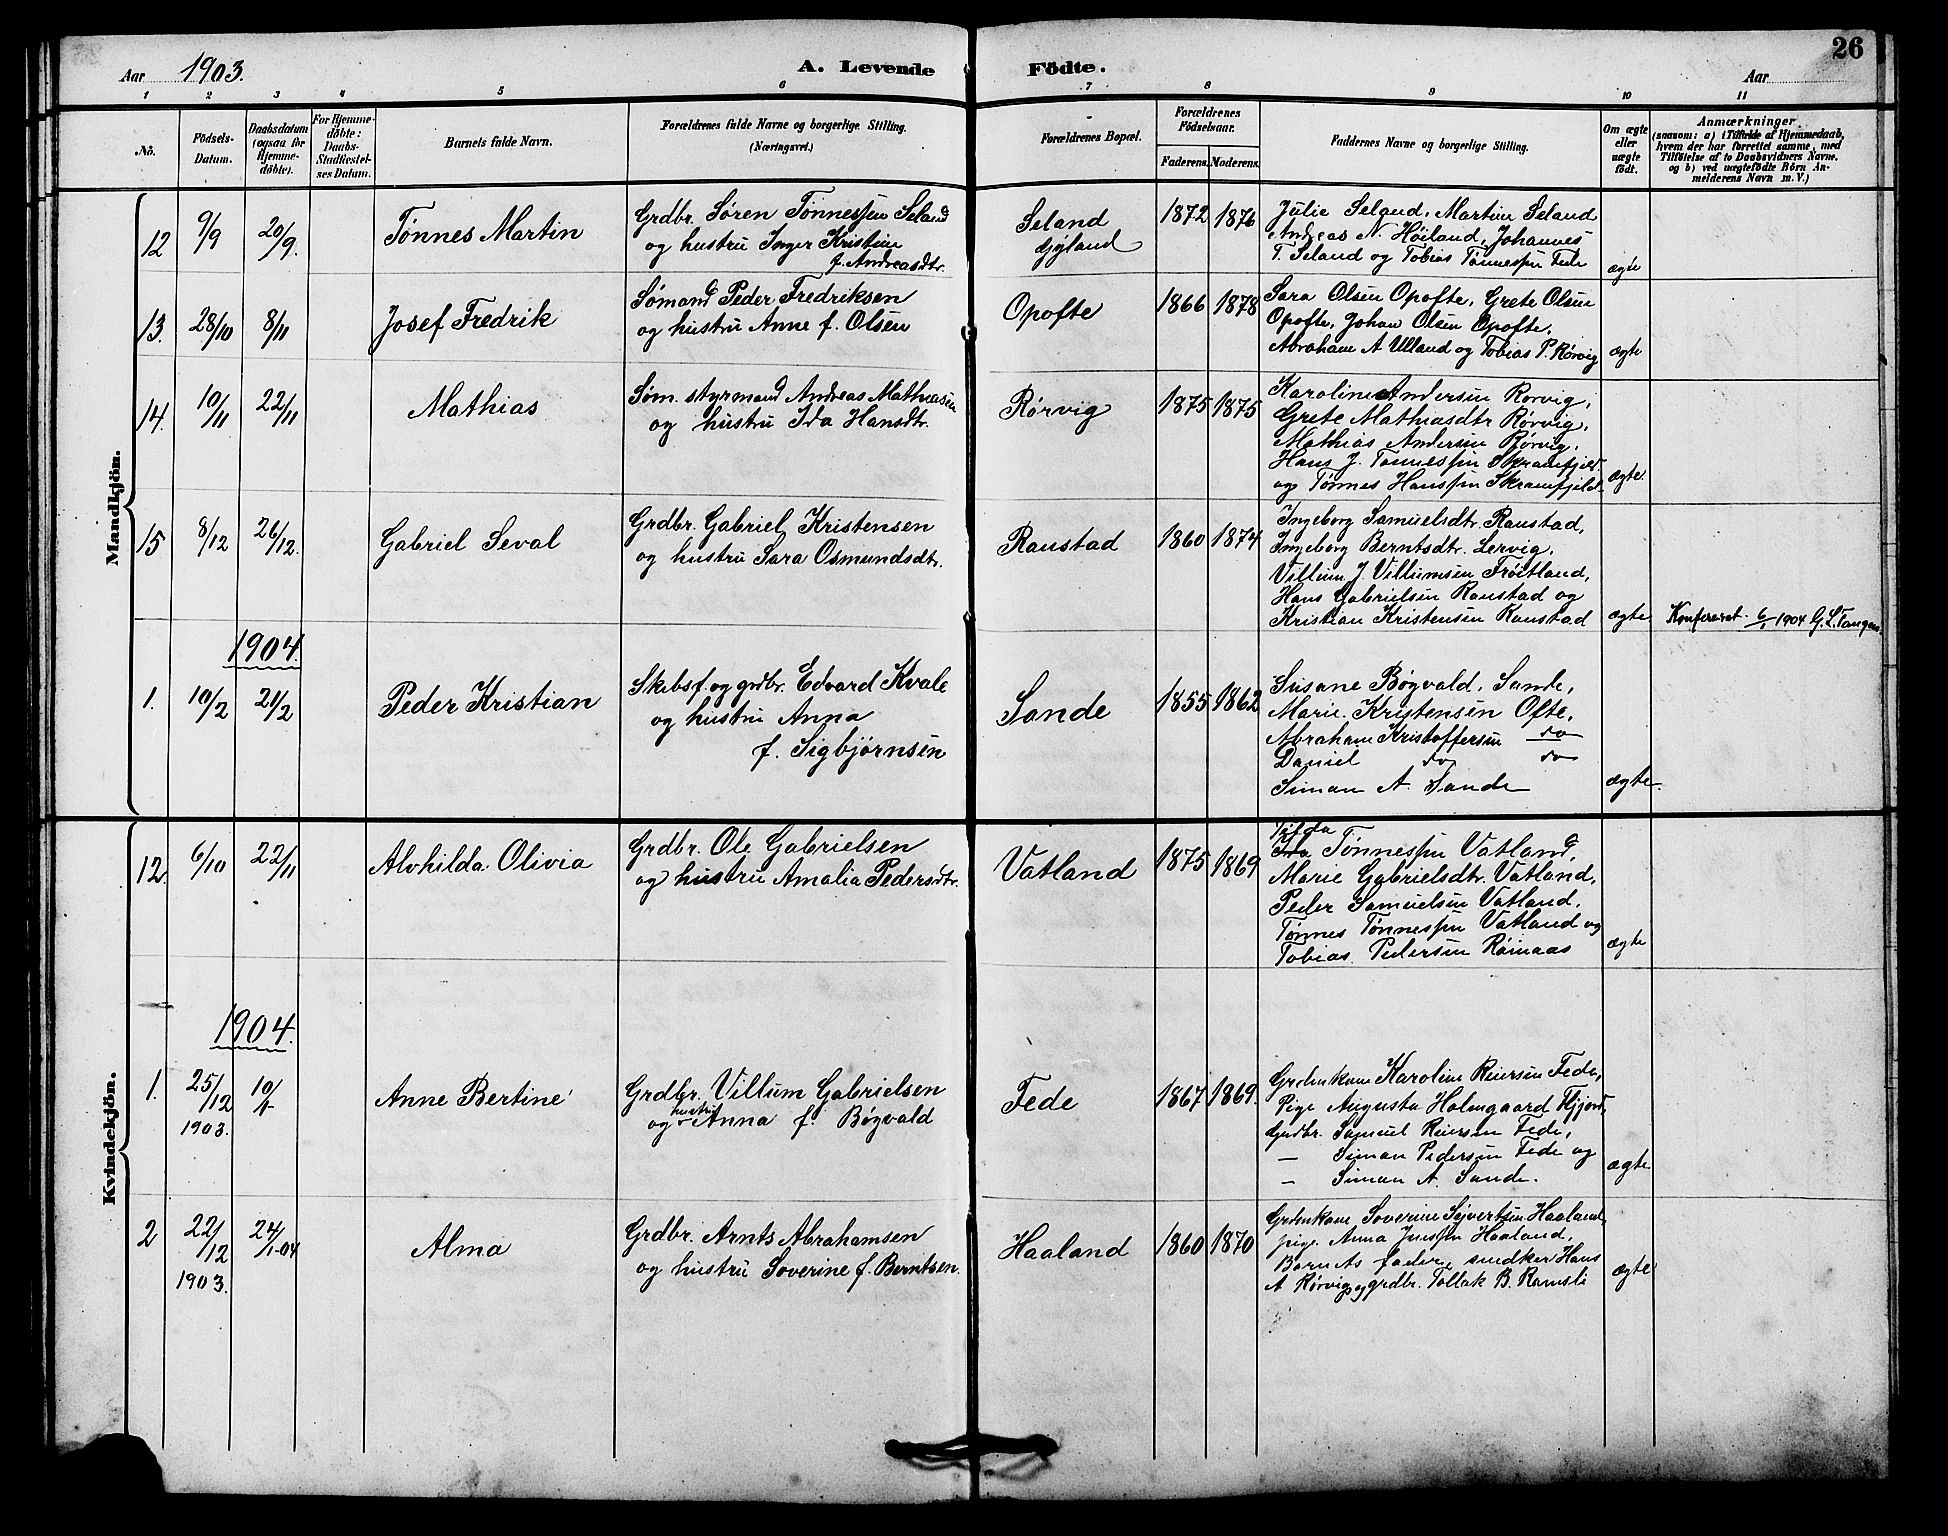 26
Aar 1903. A. Levende Födte. Aar
1 2 3 4 5 6 7 8 9 10 11
No. Födsels-Datum. Daabsdatum (ogsaa for Hjemmedöbte). For Hjemmedöbte: Daabs-Stadfæstelses Datum. Barnets fulde Navn. Forældrenes fulde Navne og borgerlige Stilling. (Næringsvei.) Forældrenes Bopæl. Forældrenes Födselsaar. Faderens. Moderens. Faddernes Navne og borgerlige Stilling. Om ægte eller uægte födt. Anmærkninger
(saasom: a) i Tilfælde af Hjemmedaab,
hvem der har forrettet samme, med
Tilföielse af to Daabsvidners Navne,
og b) ved uægtefödte Börn An-
melderens Navn m. V.)
Mandkjön.
12 9/9 20/9. Tønnes Martin
Grdbr. Søren Tønnessen Seland
og hustru Inger Kristine
f. Andreasdtr.
Seland
Gyland
1872 1876
Julie Seland, Martine Seland
Andreas N. Høiland, Johannes
T. Seland og Tobias Tønnessen Fede
ægte
13. 28/10 8/11 Josef Fredrik
Sømand Peder Fredriksen
og hustru Anne f. Olsen
Opofte 1866 1878
Sara Olsen Opofte, Grete Olsen
Opofte, Johan Olsen Opofte,
Abraham A Ulland og Tobias P. Rørvig
ægte
14. 10/11 22/11 Mathias
Søm. styrmand Andreas Mathiasen
og hustru Ida Hansdtr.
Rørvig 1875 1875
Karoline Andersen Rørvig,
Grete Mathiasdtr Rørvig,
Mathias Andersen Rørvig,
Hans J. Tønnessen Skramfjeld
og Tønnes Hanssen Skramfjeld
ægte.
15 8/12 26/12. Gabriel Seval
Grdbr. Gabriel Kristensen
og hustru Sara Osmundsdtr.
Raustad 1860 1874
Ingeborg Samuelsdtr. Raustad,
Ingeborg Berntsdtr. Lervig,
Villum J. Villumsen Frøitland,
Hans Gabrielsen Raustad og
Kristian Kristensen Raustad
ægte
Konfereret 6/1 1904 G. L. Tangen
1904.
1. 10/2 21/2 Peder Kristian
Skibsf. og grdbr. Edvard Kvale
og hustru Anna
f. Sigbjørnsen
Sande 1855 1862
Susane Bøgvald, Sande,
Marie Kristensen Ofte,
Abraham Kristoffersen do
Daniel do do
Siman A. Sande
ægte.
Kvindekjön.
12. 6/10 22/11 Alvhilda Olivia
Grdbr. Ole Gabrielsen
og hustru Amalia Pedersdtr.
Vatland 1875 1869
Tilda
Tønnessen Vatland,
Marie Gabrielsdtr. Vatland,
Peder Samuelsen Vatland,
Tønnes Tønnessen Vatland og
Tobias Pedersen Røinaas
ægte
1904.
1. 25/12 1903. 10/1 Anne Bertine
Grdbr. Villum Gabrielsen
og hustru Anna f. Bøgvald
Fede 1867 1869.
Grdenkone Karoline Reiersen Fede,
Pige Augusta Holmgaard Fljord,
Grdbr. Samuel Reiersen Fede,
— Siman Pedersen Fede og
— Siman A. Sande.
ægte
2 22/12 1903. 24/1-04 Alma
Grdbr. Arnts Abrahamsen
og hustru Soverine f. Berntsen.
Haaland 1860 1870
Grdenkone Soverine Sivertsen Haaland,
pige Anna Jenssen Haaland,
Barnets fader, snedker Hans
A Rørvig og grdbr. Tollak B. Ramsli
ægte